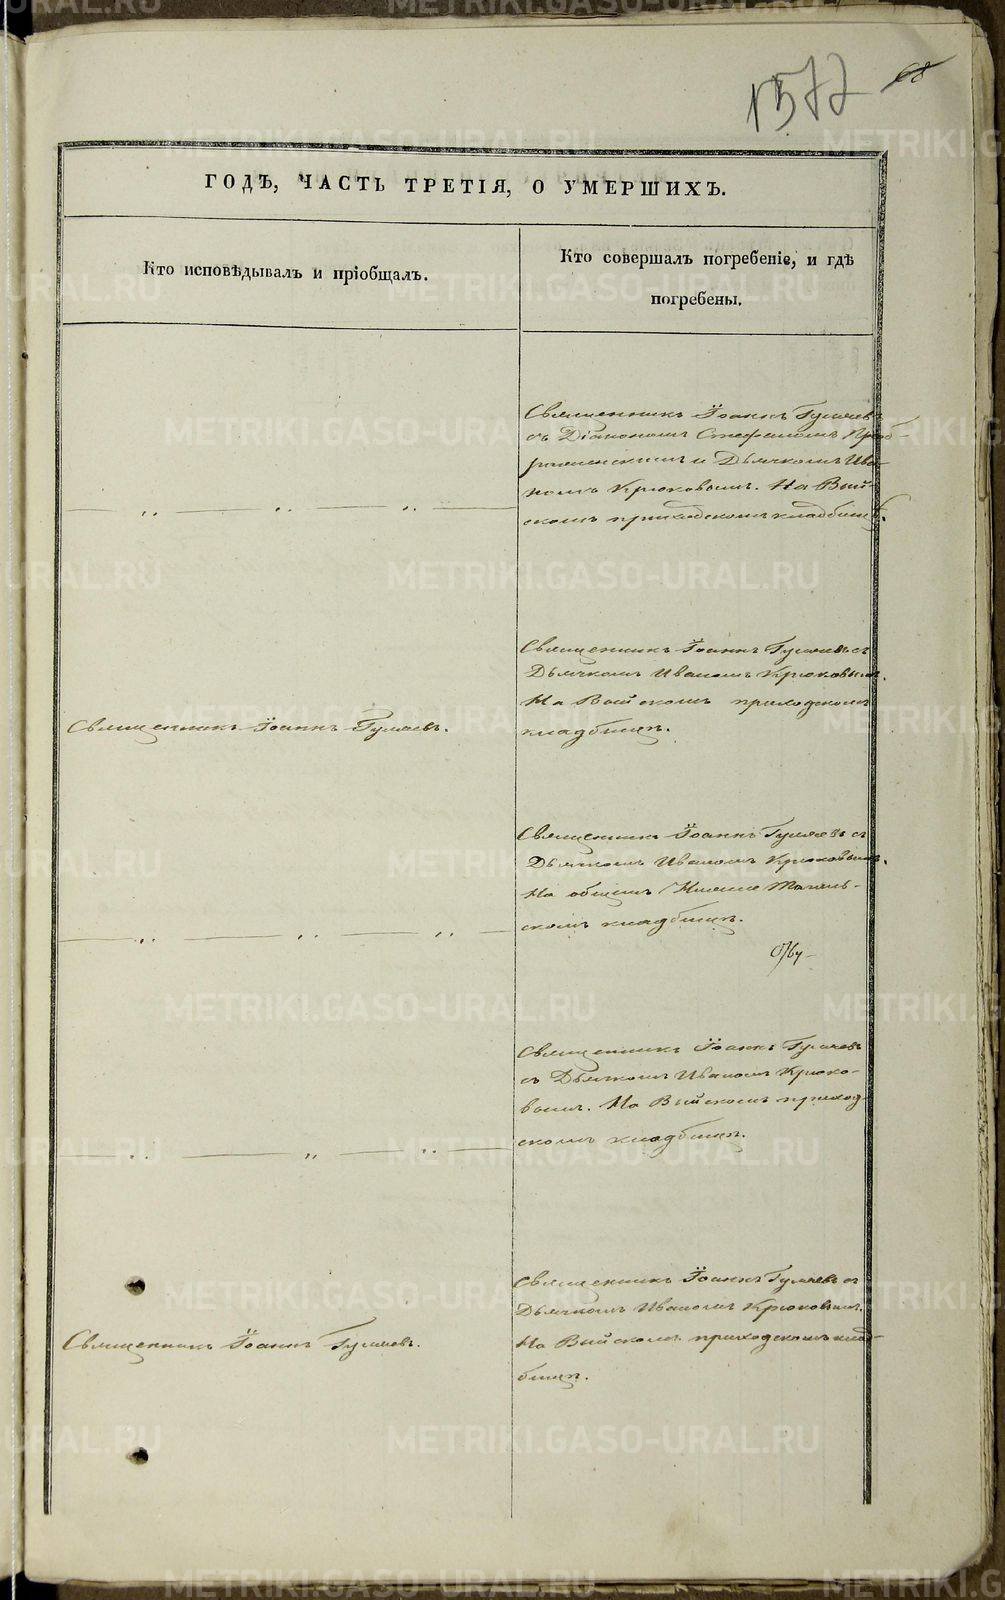 1572 68
ГОДЪ, ЧАСТЬ ТРЕТІЯ, О УМЕРШИХЪ.
Кто исповѣдывалъ и пріобщалъ.
Кто совершалъ погребеніе, и гдѣ
погребены.
Священникъ Іоаннъ Гуляевъ
съ Діакономъ Стефаномъ Преоб-
раженскимъ и Дьячкомъ Ива-
номъ Крюковымъ. На Вый-
скомъ приходскомъ кладбищѣ.
— „ — „ — „ —
Священникъ Іоаннъ Гуляевъ съ
Дьячкомъ Иваномъ Крюковымъ.
На Выйскомъ приходскомъ
кладбищѣ.
Священникъ Іоаннъ Гуляевъ.
Священникъ Іоаннъ Гуляевъ съ
Дьячкомъ Иваномъ Крюковымъ.
На общемъ Нижне Тагиль-
скомъ кладбищѣ.
— „ — „ — „ —
Священникъ Іоаннъ Гуляевъ
съ Дьячкомъ Иваномъ Крюко-
вымъ. На Выйскомъ приход
скомъ кладбищѣ.
— „ — „ — „ —
Священникъ Іоаннъ Гуляевъ съ
Дьячкомъ Иваномъ Крюковымъ.
На Выйскомъ приходскомъ клад-
бищѣ.
Священникъ Іоаннъ Гуляевъ.
METRIKI.GASO-URAL.RU